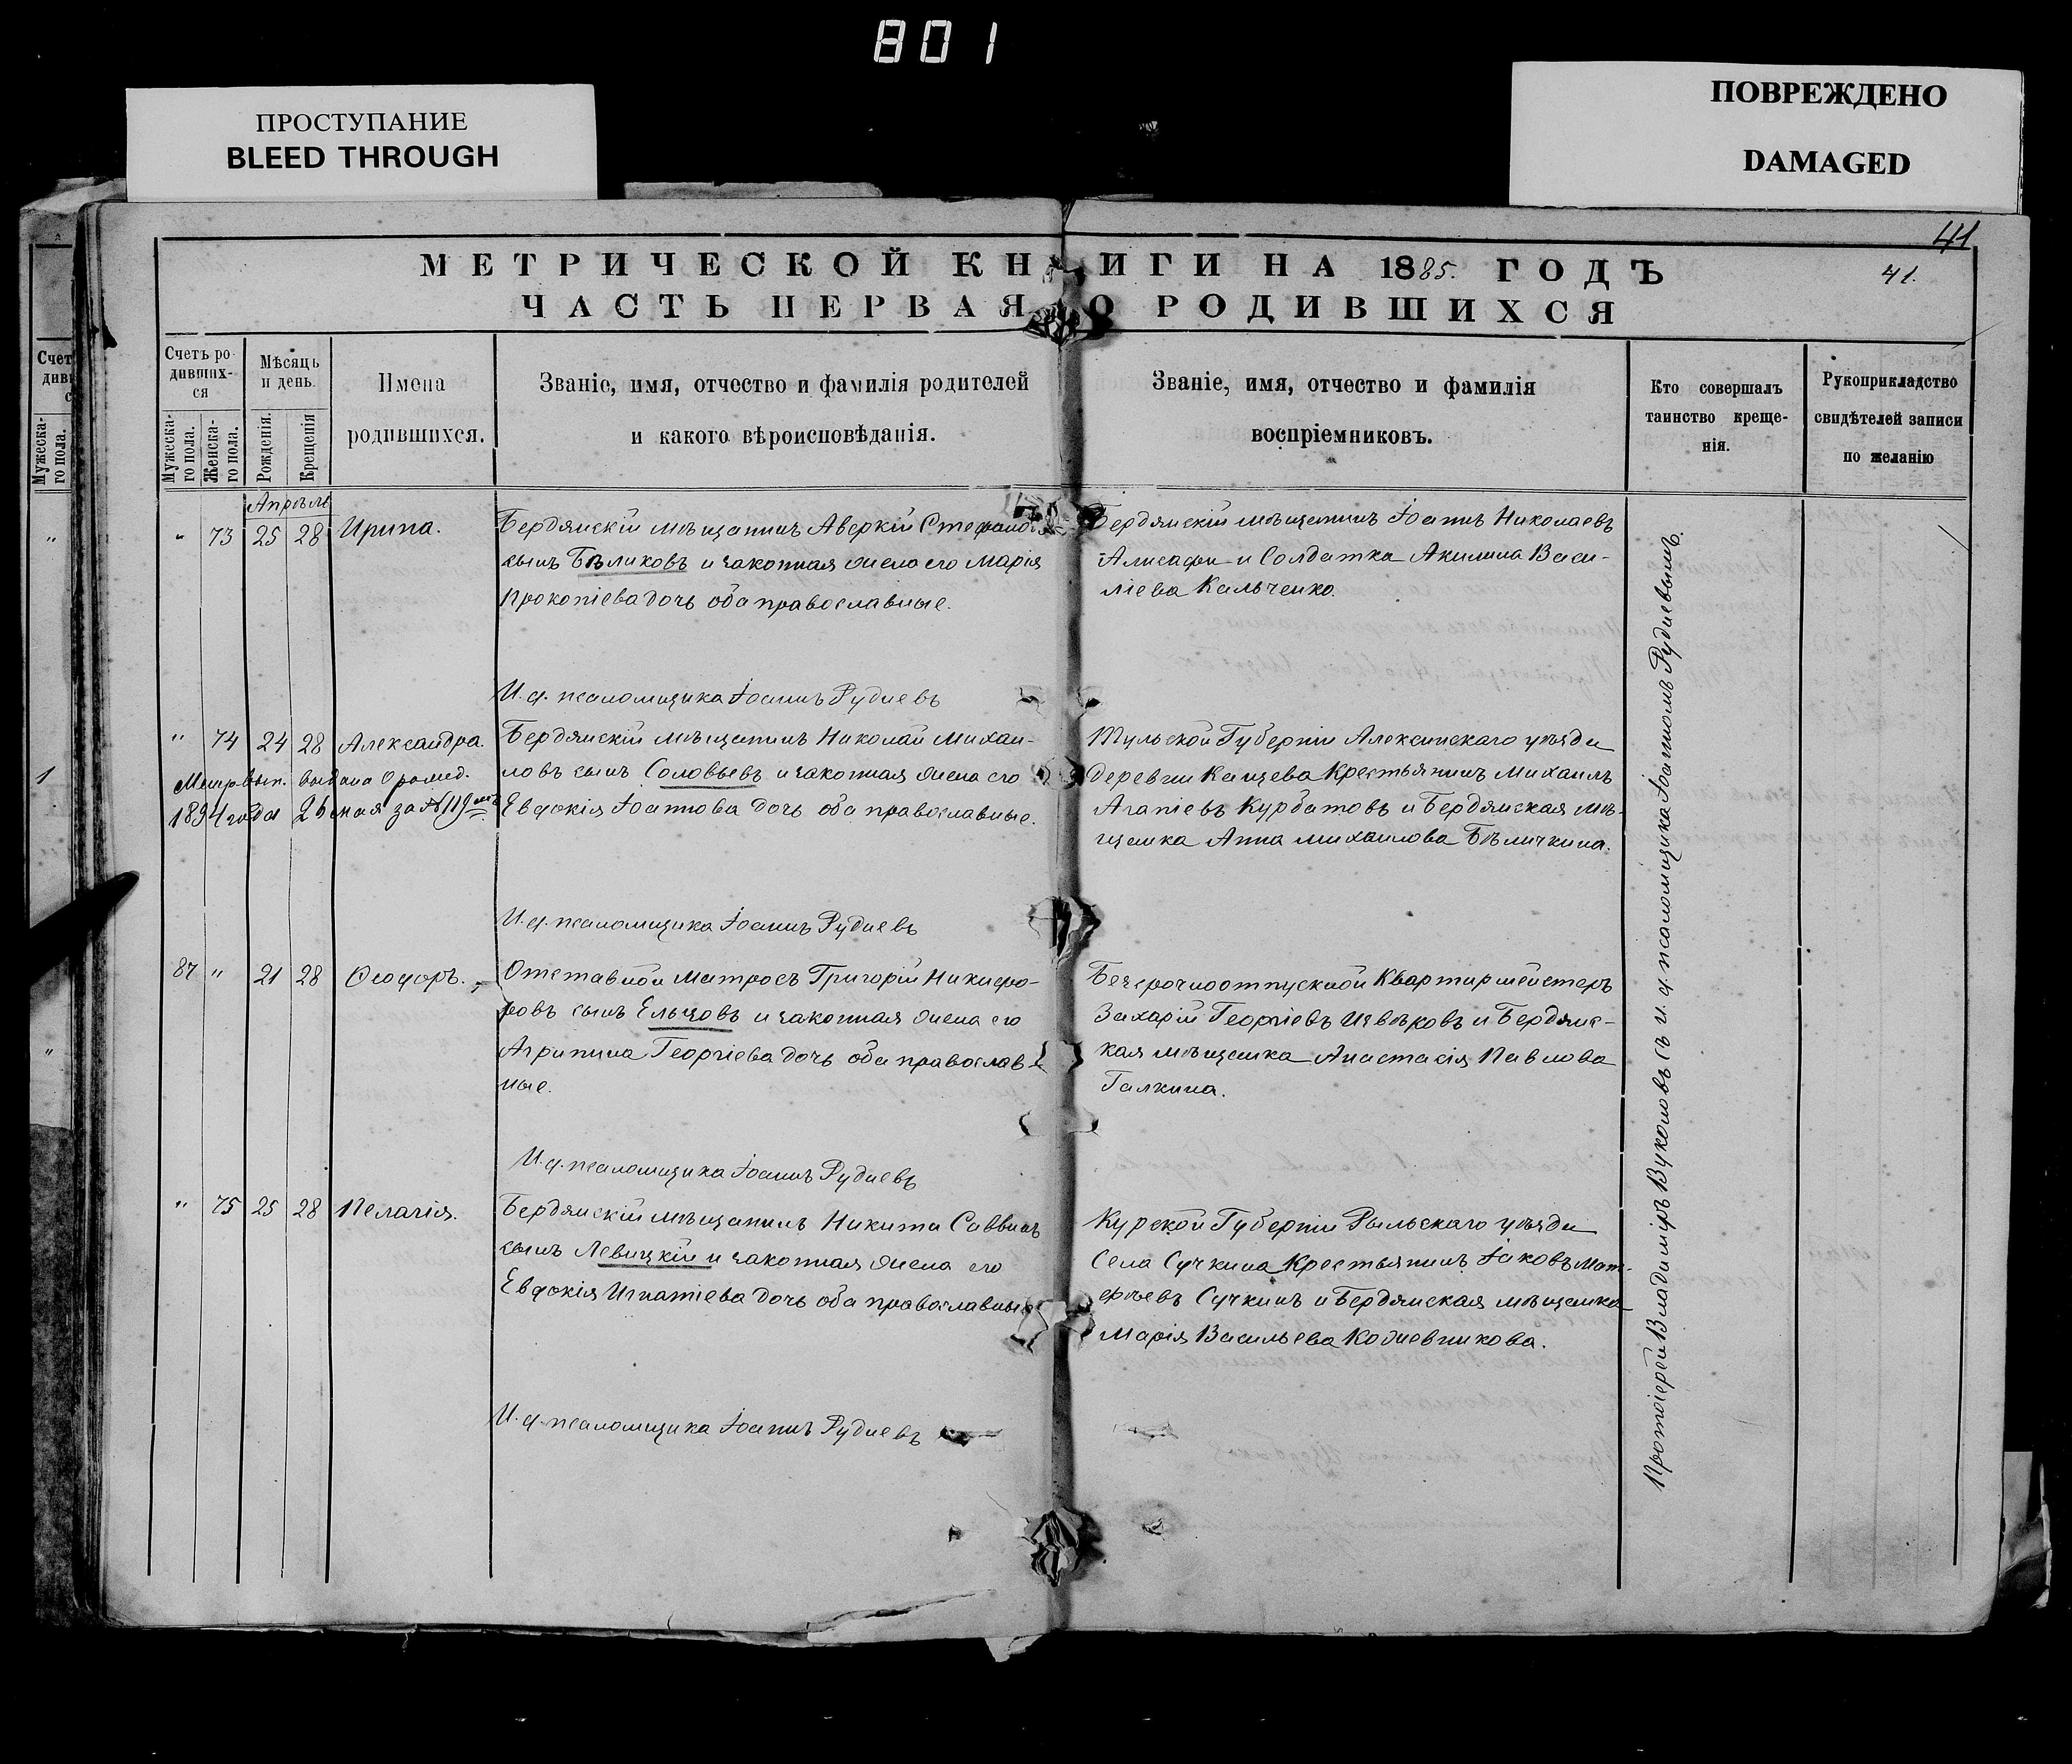 801
ПРОСТУПАНИЕ
BLEED THROUGH
ПОВРЕЖДЕНО
DAMAGED
41
МЕТРИЧЕСКОЙ КНИГИ НА 1885. ГОДЪ
41.
ЧАСТЬ ПЕРВАЯ О РОДИВШИХСЯ
Счетъ ро-
дивших-
ся
Мужеска-
го пола.
Женска-
го пола.
Мѣсяцъ
и день.
Рожденія.
Крещенія
Имена
родившихся.
Званіе, имя, отчество и фамилія родителей
и какого вѣроисповѣданія.
Званіе, имя, отчество и фамилія
воспріемниковъ.
Кто совершалъ
таинство креще-
нія.
Рукоприкладство
свидѣтелей записи
по желанію
Апрѣль
" 73 25 28 Ирина.
Бердянскій мѣщанинъ Аверкій Стефановъ
сынъ Бѣликовъ и законная жена его Марія
Прокопіева дочь оба православные.
Бердянскій мѣщанинъ Іоаннъ Николаевъ
Алисафи и Солдатка Акилина Васи-
ліева Кальченко.
И. д. псаломщика Іоаннъ Рудневъ
" 74 24 28 Александра.
Метр. вып. выдана
1894 года 26 мая за №119мъ
Бердянскій мѣщанинъ Николай Михаи-
ловъ сынъ Соловьевъ и законная жена его
Евдокія Іоаннова дочь оба православные.
Тульской Губерніи Алексинскаго уѣзда
деревни Канцева Крестьянинъ Михаилъ
Агапіевъ Курбатовъ и Бердянская мѣ-
щанка Анна Михаилова Бѣличкина.
И. д. псаломщика Іоаннъ Рудневъ
87 " 21 28 Ѳеодоръ.
Отставной Матросъ Григорій Никифо-
ровъ сынъ Ельцовъ и законная жена его
Агрипина Георгіева дочь оба православ-
ные.
Безсрочноотпускной Квартирмейстеръ
Захарій Георгіевъ Извѣковъ и Бердянс-
кая мѣщанка Анастасія Павлова
Галкина.
И. д. псаломщика Іоаннъ Рудневъ
" 75 25 28 Пелагія.
Бердянскій мѣщанинъ Никита Саввинъ
сынъ Левицкій и законная жена его
Евдокія Игнатіева дочь оба православные
Курской Губерніи Рыльскаго уѣзда
Села Сучкина Крестьянинъ Іаковъ Мат-
фѣевъ Сучкинъ и Бердянская мѣщанка
Марія Васильева Кожевникова.
И. д. псаломщика Іоаннъ Рудневъ
Протоіерей Владиміръ Вуколовъ съ и. д. псаломщика Іоанномъ Рудневымъ.